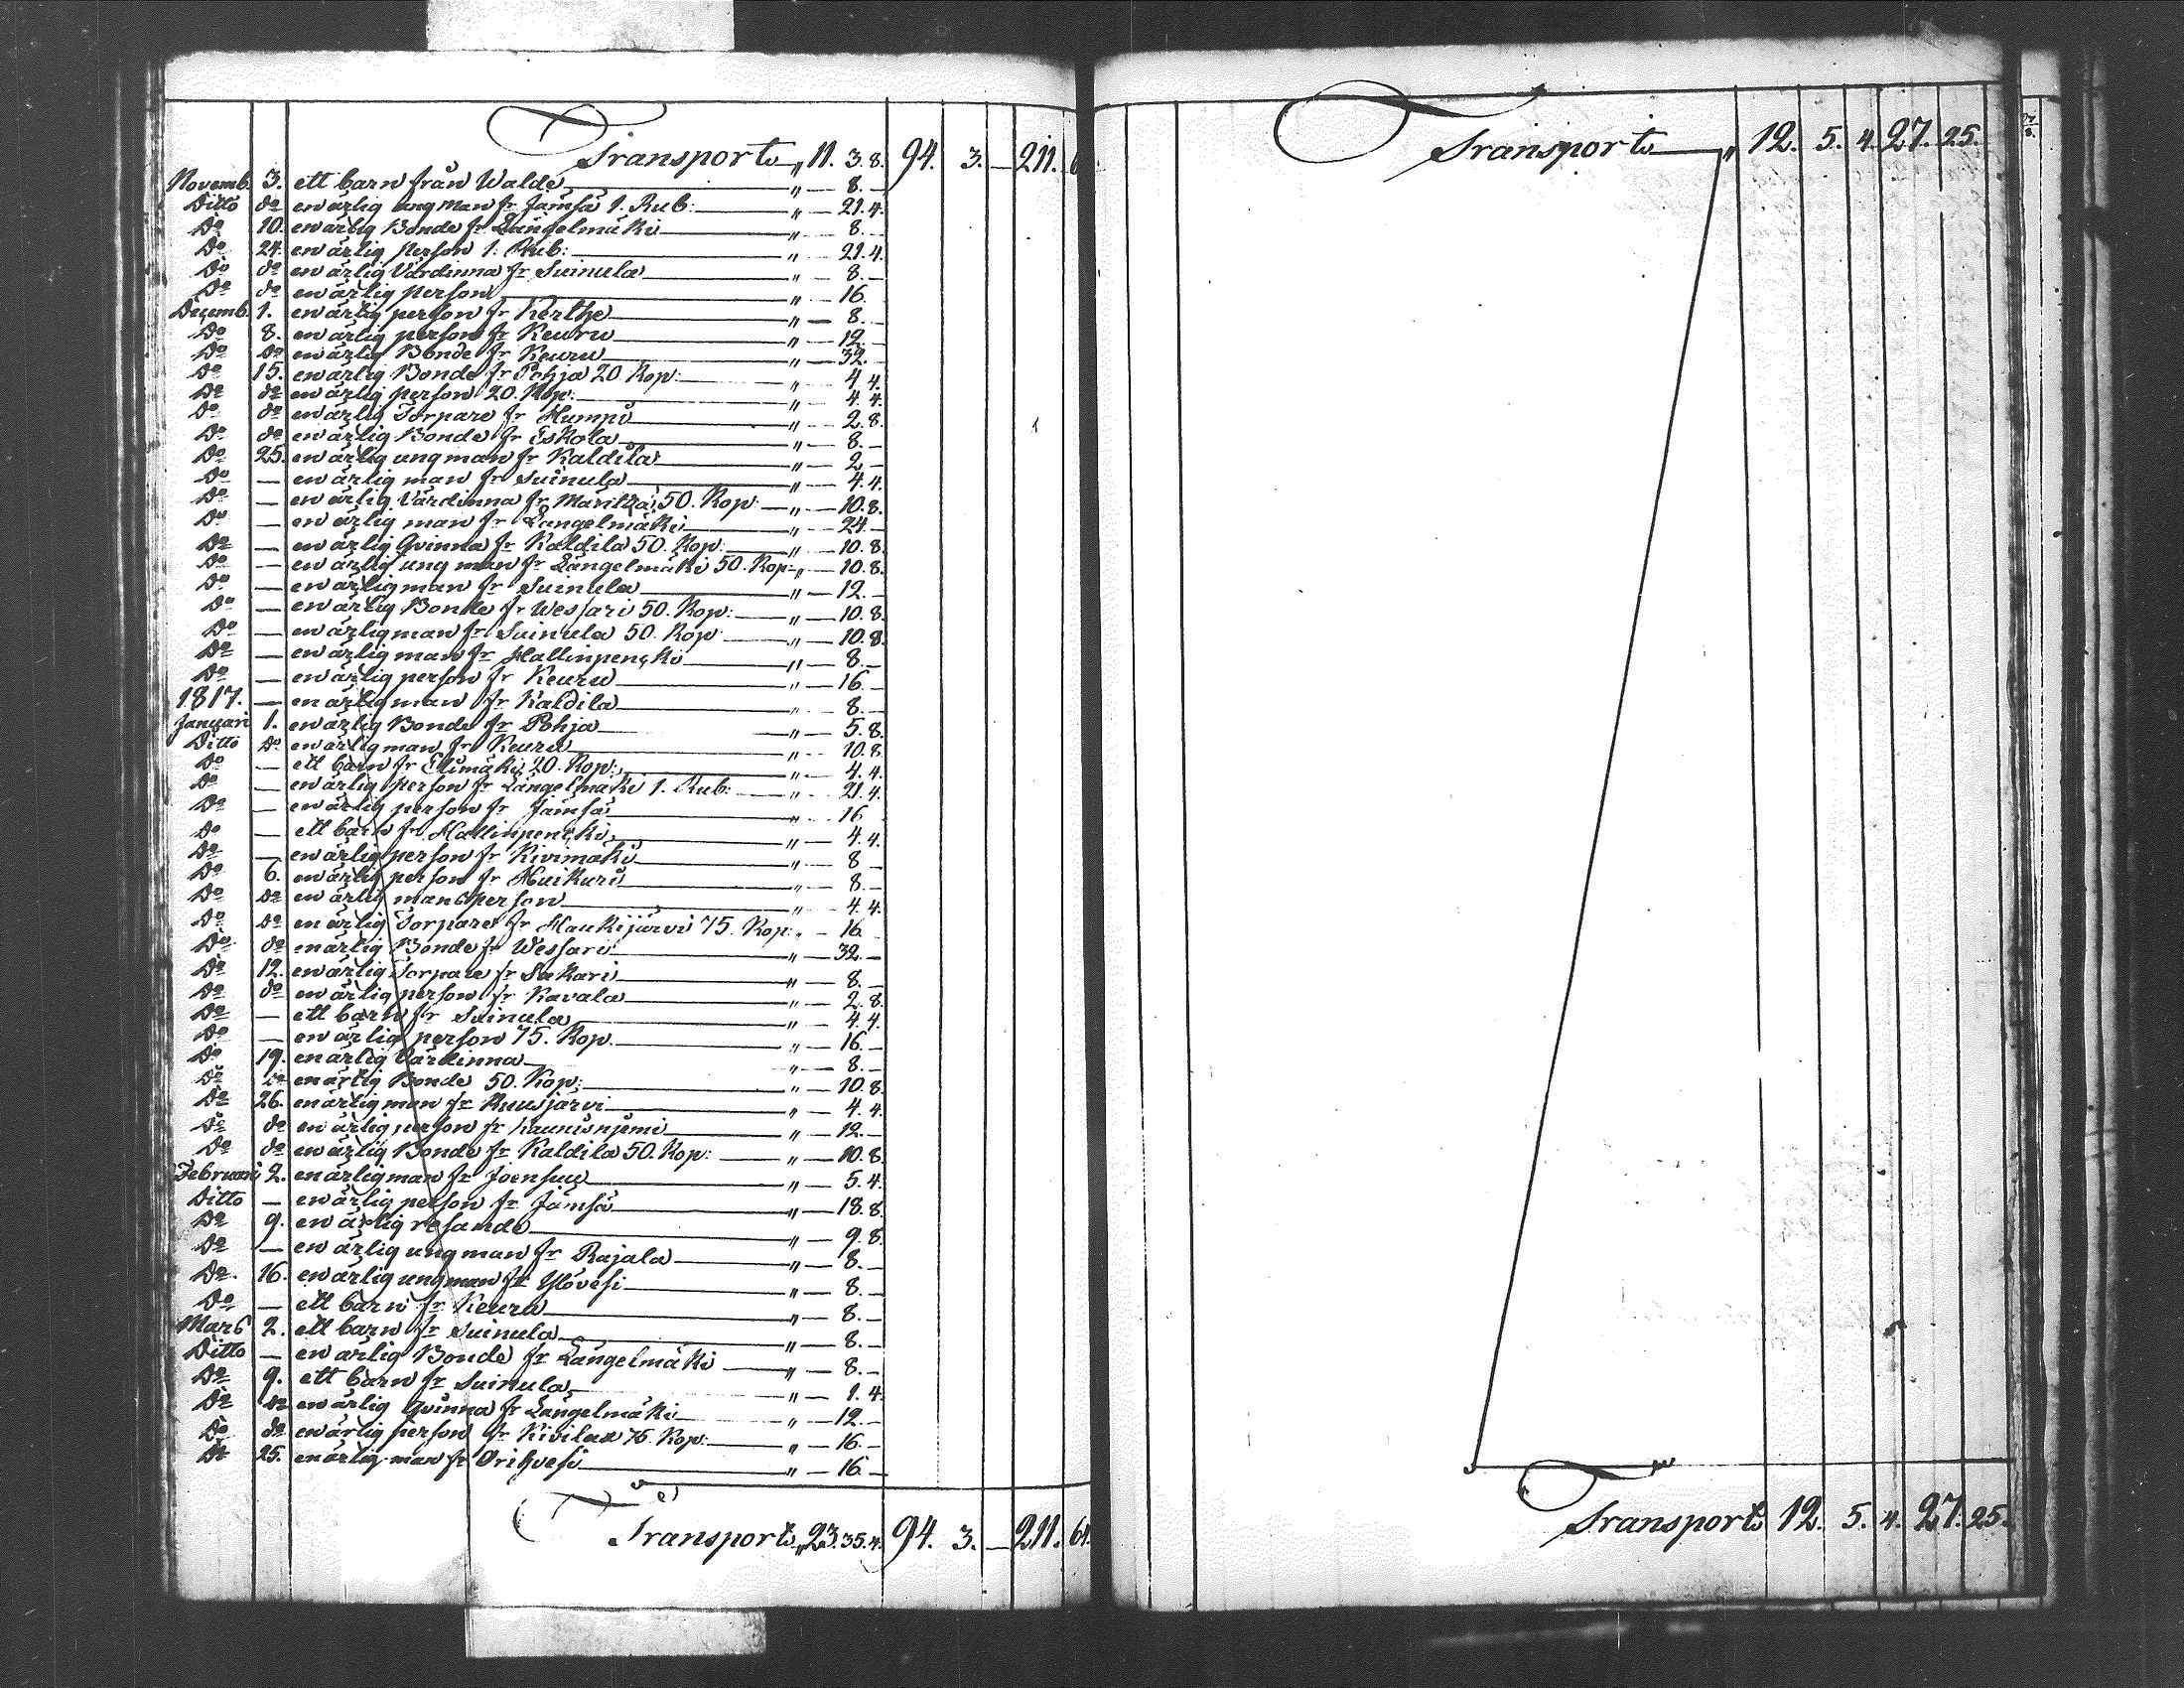 Transport „ 11. 3. 8. 94. 3. — 211. 6
Novemb. 3. ett barn från Walde „ — 8. —
Ditto do en ärlig ung man fr Jämsä 1. Rub: „ — 21. 4.
Do 10. en ärlig Bonde fr Längelmäki „ — 8. —
Do 24. en ärlig person 1. Rub: „ — 21. 4.
Do do en ärlig Värdinna fr Suinula „ — 8. —
Do do en ärlig person „ — 16.
Decemb. 1. en ärlig person fr Kerthe „ — 8. —
Do 8. en ärlig person fr Keuru „ — 12. —
Do do en ärlig Bonde fr Keuru „ — 32. —
Do 15. en ärlig Bonde fr Pohja 20. Kop: „ — 4. 4.
Do do en ärlig person 20. Kop: „ — 4. 4.
Do do en ärlig Torpare fr Humpi „ — 2. 8.
Do do en ärlig Bonde fr Eskola „ — 8. —
Do 25. en ärlig ung man fr Kaldila „ — 2. —
Do — en ärlig man fr Suinula „ — 4. 4.
Do — en ärlig Värdinna fr 50. Kop: „ — 10. 8.
Do — en ärlig man fr Längelmäki „ — 24. —
Do — en ärlig Qvinna fr Kaldila 50. Kop: „ — 10. 8.
Do — en ärlig ung man fr Längelmäki 50. Kop: „ — 10. 8.
Do — en ärlig man fr Suinula „ — 12. —
Do — en ärlig Bonde fr Wessari 50. Kop: „ — 10. 8.
Do — en ärlig man fr Suinula 50. Kop: „ — 10. 8.
Do — en ärlig man fr Hallinpencki „ — 8. —
Do — en ärlig person fr Keuru „ — 16. —
1817. — en ärlig man fr Kaldila „ — 8. —
Januari 1. en ärlig Bonde fr Pohja „ — 5. 8.
Ditto do en ärlig man fr Keuru „ — 10. 8.
Do — ett barn fr Elimäki 20. Kop: „ — 4. 4.
Do — en ärlig person fr Längelmäki 1. Rub: „ — 21. 4.
Do — en ärlig person fr Jämsä „ — 16
Do — ett barn fr Hallinpencki „ — 4. 4.
Do — en ärlig person fr Kivimäki „ — 8. —
Do 6. en ärlig person fr Huikuri „ — 8. —
Do do en ärlig mansperson „ — 4. 4.
Do do en ärlig Torpare fr Haukijärvi 75. Kop: „ — 16.
Do do en ärlig Bonde fr Wessari „ — 32. —
Do 12. en ärlig Torpare fr Sakari „ — 8. —
Do do en ärlig person fr Kavala „ — 2. 8.
Do — ett barn fr Suinula „ — 4. 4.
Do — en ärlig person 75. Kop. „ — 16. —
Do 19. en ärlig Värdinna „ — 8. —
Do do en ärlig Bonde 50. Kop: „ — 10. 8.
Do 26. en ärlig man fr Kuusjärvi „ — 4. 4.
Do do en ärlig person fr Kaunisnjemi „ — 12. —
Do do en ärlig Bonde fr Kaldila 50. Kop: „ — 10. 8.
Februari 2. en ärlig man fr Joensuu „ — 5. 4.
Ditto — en ärlig person fr Jämsä „ — 18. 8.
Do 9. en ärlig resande „ — 9. 8.
Do — en ärlig ung man fr Rajala „ — 8. —
Do 16. en ärlig ung man fr Ylövesi „ — 8. —
Do — ett barn fr Keuru „ — 8. —
Mars 2. ett barn fr Suinula „ — 8. —
Ditto — en ärlig Bonde fr Längelmäki „ — 8. —
Do 9. ett barn fr Suinula „ — 1. 4.
Do do en ärlig Qvinna fr Längelmäki „ — 12. —
Do do en ärlig person fr Kivilax 75. Kop: „ — 16. —
Do 25. en ärlig man fr Orihvesi „ — 16. —
Transport „ 23. 35. 4. 94. 3. — 211. 64.
Transport „ 12. 5. 4. 27. 25.
Transport 12. 5. 4. 27. 25.